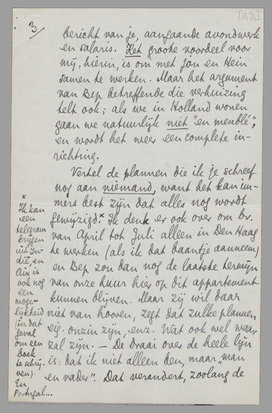 3/
bericht van je, aangaande avondwerk
en salaris. Het groote voordeel voor
mij, hierin, is om met jou en Hein
samen te werken. Maar het argument
van Bep betreffende die verhuizing
telt ook; als we in Holland wonen
gaan we natuurlijk niet "en meublé",
en wordt het weer een complete in-
richting.
Vertel de plannen die ik je schreef
nog aan niemand, want het kan im-
mers best zijn dat alles nog wordt
gewijzigd.* Ik denk er ook over om bv.
van April tot Juli alleen in Den Haag
te werken (als ik dat baantje aanneem)
en Bep zou dan nog de laatste termijn
van onze huur hier op dit appartement
kunnen blijven. Maar zij wil daar
niet van hooren, zegt dat zulke plannen
eig. onzin zijn, enz. Wat ook wel waar
zal zijn. – De draai over de heele lijn
is: dat ik niet alleen ben, maar "man
en vader". Dat verandert, zoolang de
* Ik kan
een
telegram
krijgen
uit In-
dië, en
Aix is
ook nog
een
moge-
lijkheid
(in dat
geval
om een
boek
te schrij-
ven).
En
Portugal...